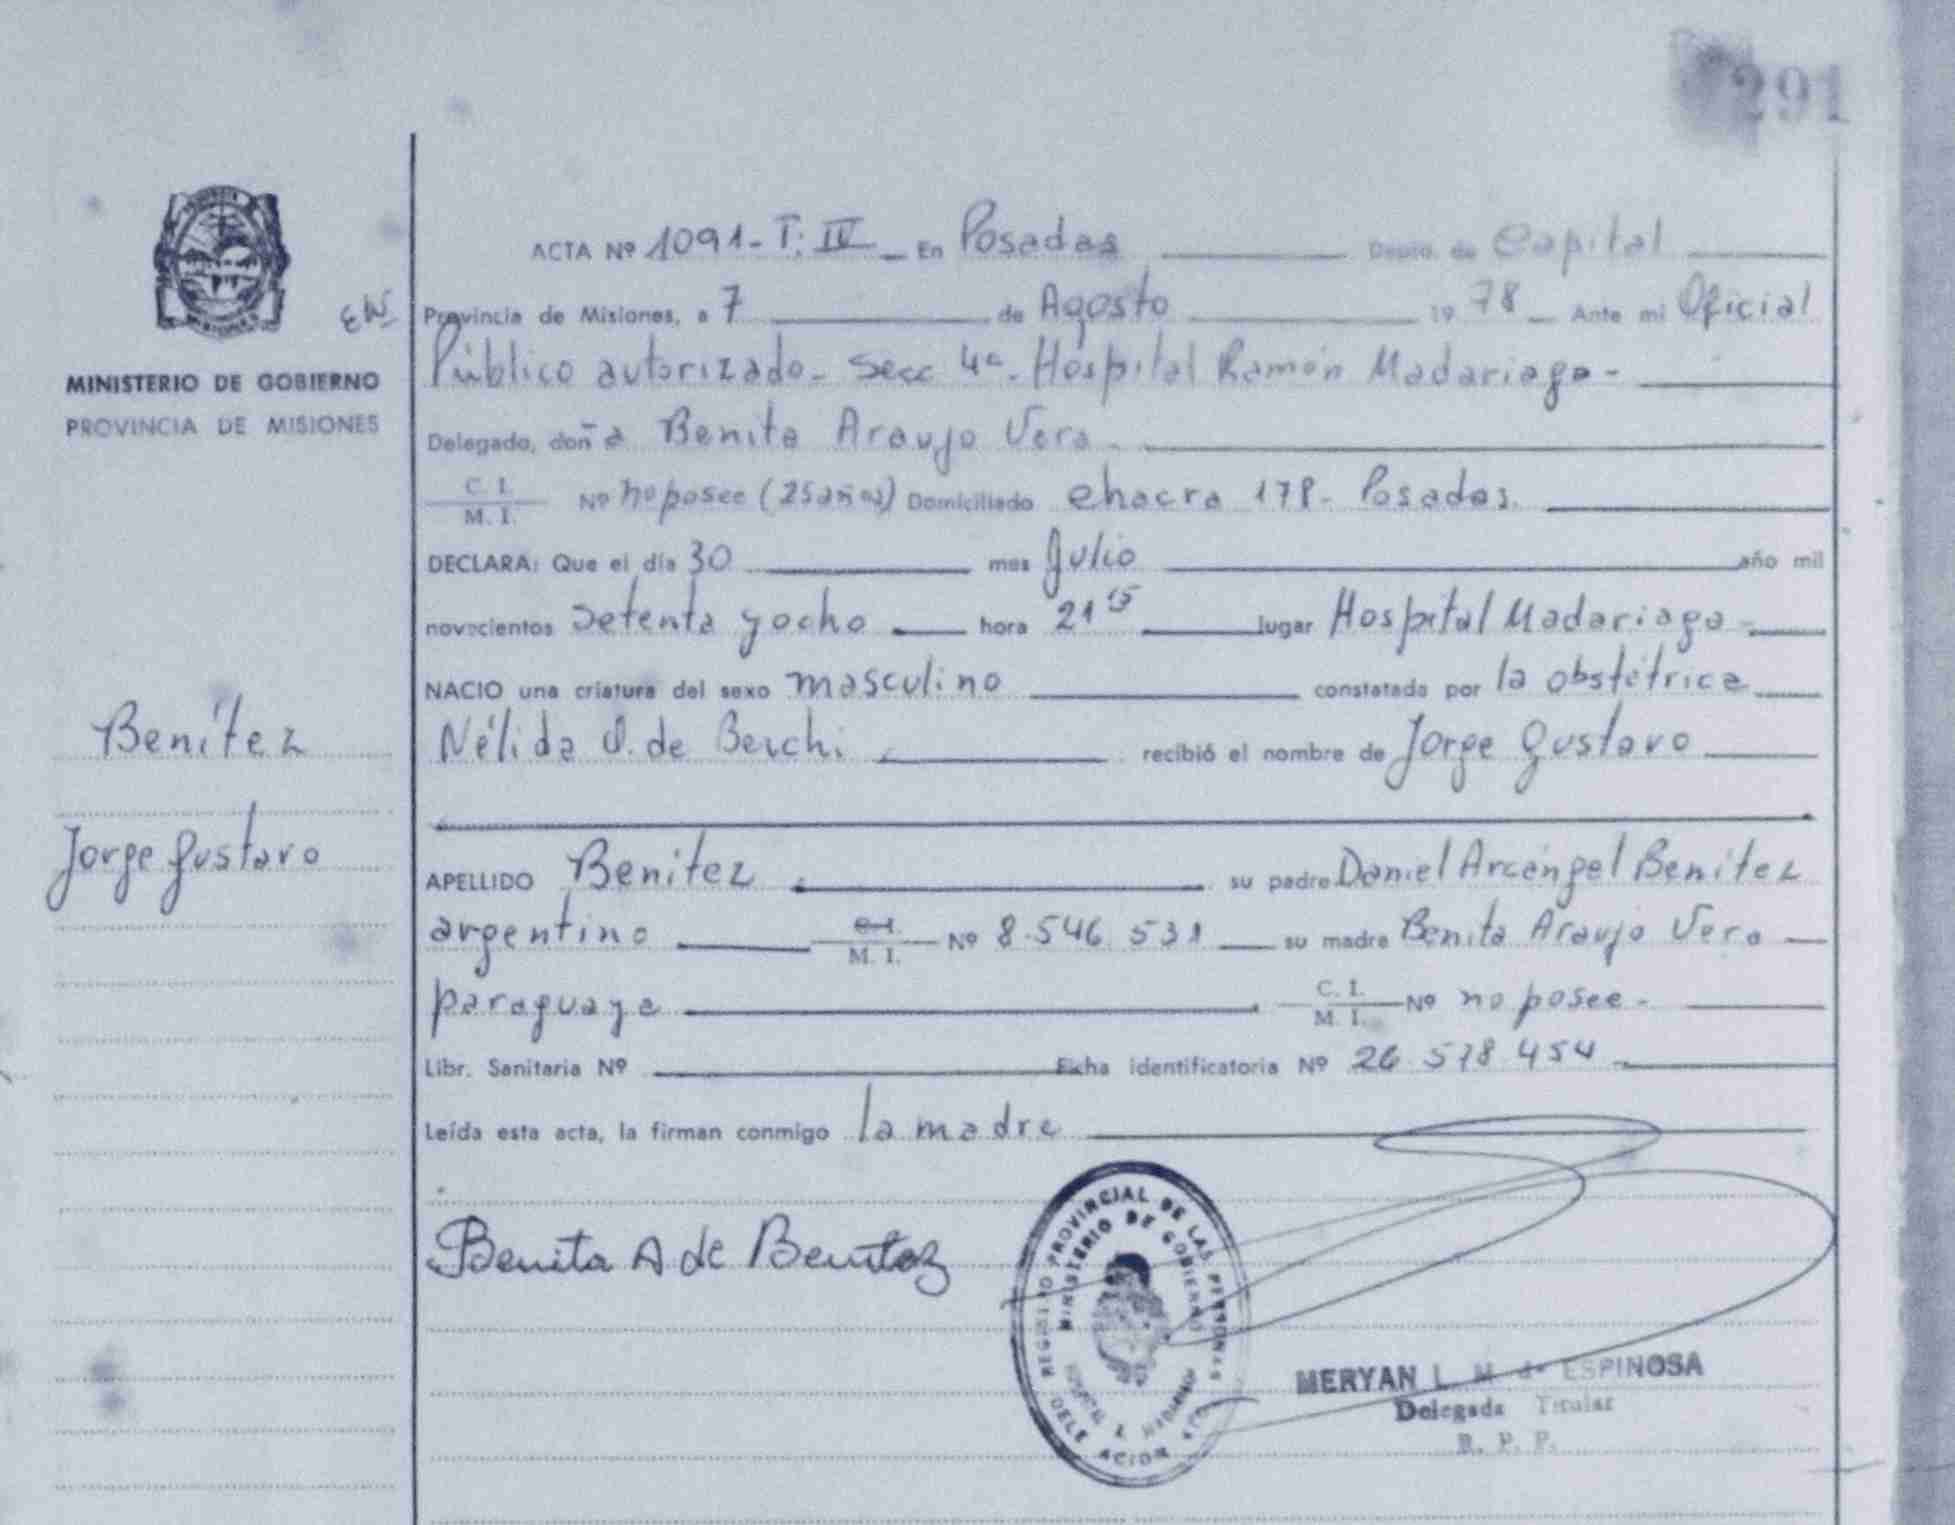 291
ACTA Nº 1091 - T: IV En Posadas Depto. de Capital
EW
Provincia de Misiones, a 7 de Agosto 1978 Ante mi Oficial
MINISTERIO DE GOBIERNO
PROVINCIA DE MISIONES
Público autorizado - Secc 4ª - Hospital Ramón Madariaga -
Delegado, doña Benita Araujo Vera
C. I. / M. I. Nº no posee (25 años) Domiciliado chacra 178 - Posadas.
DECLARA: Que el día 30 mes Julio año mil
novecientos setenta y ocho hora 21 15 lugar Hospital Madariaga -
NACIO una criatura del sexo masculino constatada por la obstétrica
Benítez
Nélida O. de Berchi recibió el nombre de Jorge Gustavo
Jorge Gustavo
APELLIDO Benítez su padre Daniel Arcángel Benítez
argentino C. I. / M. I. Nº 8.546.531 su madre Benita Araujo Vera
paraguaya C. I. / M. I. Nº no posee -
Libr. Sanitaria Nº Ficha identificatoria Nº 26.578.454
Leída esta acta, la firman conmigo la madre
Benita A de Benitez
REGISTRO PROVINCIAL DE LAS PERSONAS
MINISTERIO DE GOBIERNO
DELEGACION
MERYAN L. M. de ESPINOSA
Delegada Titular
R. P. P.